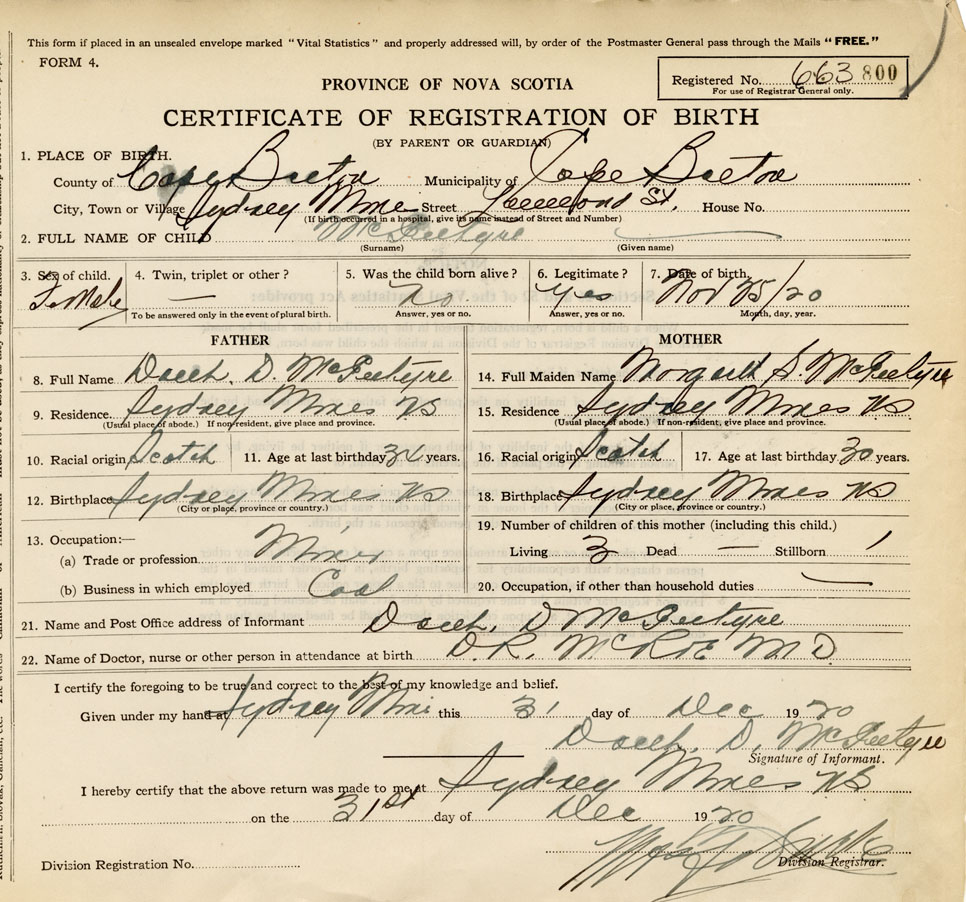 This form if placed in an unsealed envelope marked "Vital Statistics" and properly addressed will, by order of the Postmaster General pass through the Mails "FREE."
FORM 4.
Registered No. 663 800
For use of Registrar General only.
PROVINCE OF NOVA SCOTIA
CERTIFICATE OF REGISTRATION OF BIRTH
(BY PARENT OR GUARDIAN)
1. PLACE OF BIRTH.
County of Cape Breton Municipality of Cape Breton
City, Town or Village Sydney Mines Street St. House No.
(If birth occurred in a hospital, give its name instead of Street and Number)
2. FULL NAME OF CHILD
(Surname) (Given name)
3. Sex of child. 4. Twin, triplet or other? 5. Was the child born alive? 6. Legitimate? 7. Date of birth.
Female — No Yes Nov 25/20
To be answered only in the event of plural birth. Answer, yes or no. Answer, yes or no. Month, day, year.
FATHER MOTHER
8. Full Name D. 14. Full Maiden Name S.
9. Residence. Sydney Mines NS 15. Residence Sydney Mines NS
(Usual place of abode.) If non-resident, give place and province. (Usual place of abode.) If non-resident, give place and province.
10. Racial origin Scotch 11. Age at last birthday years. 16. Racial origin Scotch 17. Age at last birthday 30 years.
12. Birthplace Sydney Mines NS 18. Birthplace Sydney Mines NS
(City or place, province or country.) (City or place, province or country.)
13. Occupation:— 19. Number of children of this mother (including this child.)
(a) Trade or profession Miner Living 3 Dead — Stillborn 1
(b) Business in which employed Coal 20. Occupation, if other than household duties —
21. Name and Post Office address of Informant D
22. Name of Doctor, nurse or other person in attendance at birth D.R. M.D.
I certify the foregoing to be true and correct to the best of my knowledge and belief.
Given under my hand at Sydney Mines this 31 day of Dec 1920
D.
Signature of Informant.
I hereby certify that the above return was made to me at Sydney Mines NS
on the 31st day of Dec 1920
Division Registration No. Division Registrar.